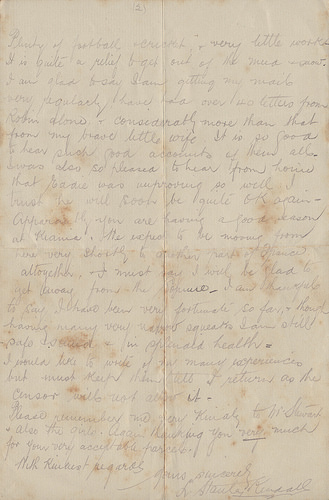 (2)
Plenty of football, cricket, & very little work
It is quite a relief to get out of the mud & snow.
I am glad to say I am getting my mail
very regularly, I have had over six letters from
Robin alone & considerably more than that
from my brave little wife. It is so good
to hear such good accounts of them all.
I was also so pleased to hear from home
that Eddie was improving so well, I
trust he will soon be quite O.K. again.
Apparently you are having a good season
at Kiama. We expect to be moving from
here very shortly to another part of France
altogether, & I must say I will be glad to
get away from the I am thankful
to say I have been very fortunate so far, & though
having many very narrow squeaks I am still
safe & sound & in splendid health.
I would like to write of my many experiences
but must keep them until I return as the
censor will not allow it.
Please remember me very kindly to Mr Stewart
& also the girls. Again thanking you very much
for your very acceptable parcel,
With kindest regards
Yours sincerely
Kendall